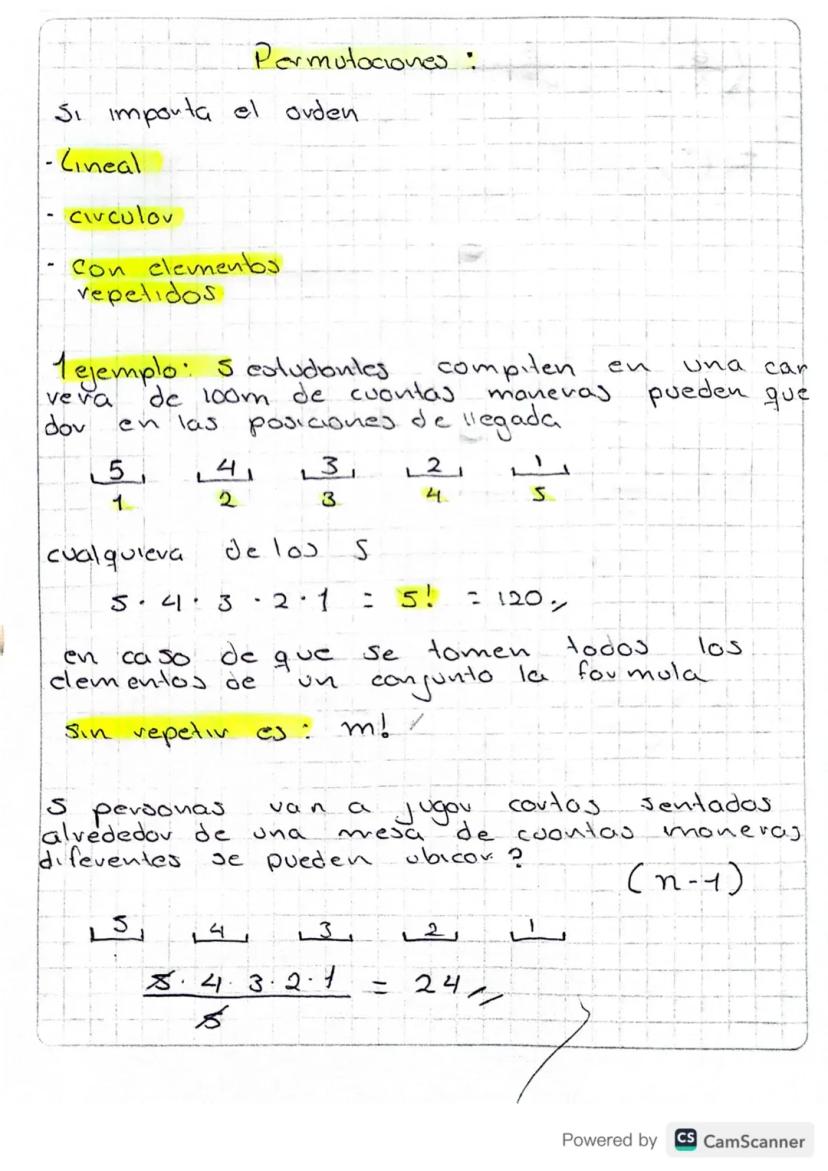 Permutaciones :
Si importa el orden
- Lineal
- circular
- con elementos
repetidos
1 ejemplo: 5 estudantes compiten en una car
rera de 100m de cuantas maneras pueden que
dar en las posiciones de llegada
5 4 3 2 1
1 2 3 4 5
cualquiera de los 5
5 · 4 · 3 · 2 · 1 = 5! = 120
en caso de que se tomen todos los
elementos de un conjunto la formula
sin repetir es : m!
5 personas van a jugar cartas sentadas
alrededor de una mesa de cuantas maneras
diferentes se pueden ubicar ?
(n-1)
5 4 3 2 1
5 · 4 · 3 · 2 · 1 = 24
5
Powered by CS CamScanner